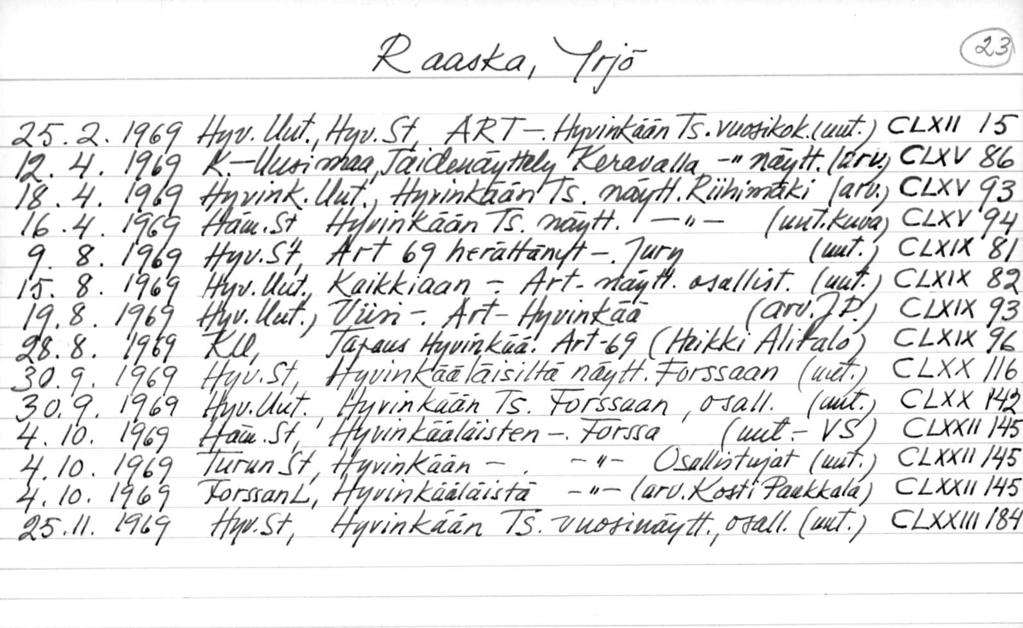 Raaska, Yrjö 23
25. 2. 1969 Hyv. Uut., Hyv. St, ART-. Hyvinkään Ts. vuosikok. (uut.) CLXII 15
12. 4. 1969 K.-Uusimaa, Taidenäyttely Keravalla -"- näytt. (arv.) CLXV 86
18. 4. 1969 Hyvink. Uut., Hyvinkään Ts. näytt. Riihimäki (arv.) CLXV 93
16. 4. 1969 Häm. St Hyvinkään Ts. näytt. -"- (uut. kuva) CLXV 94
9. 8. 1969 Hyv. St, Art 69 herättänyt -. Jury (uut.) CLXIX 81
15. 8. 1969 Hyv. Uut, Kaikkiaan -. Art- näytt. osallist. (uut.) CLXIX 82
19. 8. 1969 Hyv. Uut., Viiri -. Art- Hyvinkää (arv. J.P.) CLXIX 93
28. 8. 1969 KU, Tapaus Hyvinkää. Art-69 (Heikki Alitalo) CLXIX 96
30. 9. 1969 Hyv. St, Hyvinkääläisiltä näytt. Forssaan (uut.) CLXX 116
30. 9. 1969 Hyv. Uut. Hyvinkään Ts. Forssaan, osall. (uut.) CLXX 142
4. 10. 1969 Häm. St, Hyvinkääläisten -. Forssa (uut - VS) CLXXII 145
4. 10. 1969 Turun St, Hyvinkään -. -"- Osallistujat (uut.) CLXXII 145
4. 10. 1969 Forssan L, Hyvinkääläistä -"- (arv. Kosti Paakkala) CLXXII 145
25. 11. 1969 Hyv. St, Hyvinkään Ts. vuosinäytt., osall. (uut.) CLXXIII 184